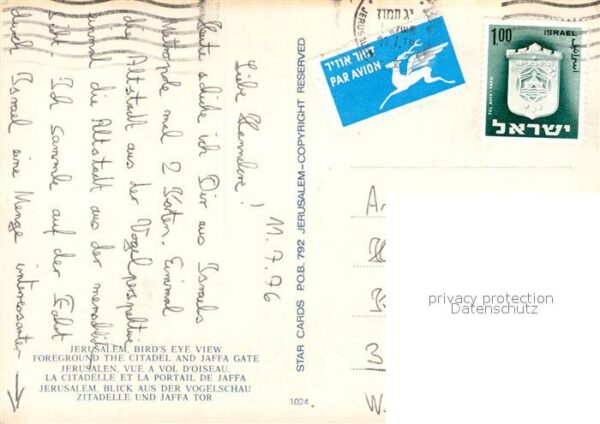 11.7.76
Liebe Hannelore!
Heute schicke ich Dir aus Israels
Metropole mal 2 Karten. Einmal
die Altstadt aus der Vogelperspektive
einmal die Altstadt aus der menschlichen
Ich sammle auf der Fahrt
durch Israel eine Menge interessanter →
JERUSALEM, BIRD'S EYE VIEW
FOREGROUND THE CITADEL AND JAFFA GATE
JERUSALEM, VUE A VOL D'OISEAU.
LA CITADELLE ET LA PORTAIL DE JAFFA
JERUSALEM, BLICK AUS DER VOGELSCHAU
ZITADELLE UND JAFFA TOR
1024
STAR CARDS P.O.B. 792 JERUSALEM-COPYRIGHT RESERVED
דואר אוויר
PAR AVION
יג תמוז
JERUSALEM
1.00 ISRAEL
اسرائيل
תל אביב-יפו
TEL AVIV-YAFO
ישראל
3
W.
privacy protection
Datenschutz